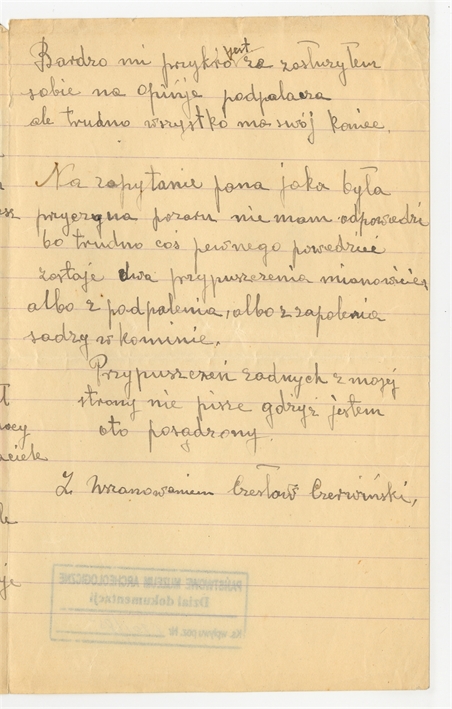 Bardzo mi przykro jest że zasłużyłem
sobie na opinje podpalacza
ale trudno wszystko ma swój koniec.
Na zapytanie pana jaka była
przyczyna pożaru nie mam odpowiedzi
bo trudno coś pewnego powiedzieć
zostaje dwa przypuszczenia mianowicie
albo z podpalenia, albo z zapalenia
sadzy w kominie.
Przypuszczeń żadnych z mojej
strony nie pisze gdzyż jestem
oto posądzony.
Z uszanowaniem Czesław Czerwiński,
PAŃSTWOWE MUZEUM ARCHEOLOGICZNE
Dział dokumentacji
Ks. wpływu poz. Nr